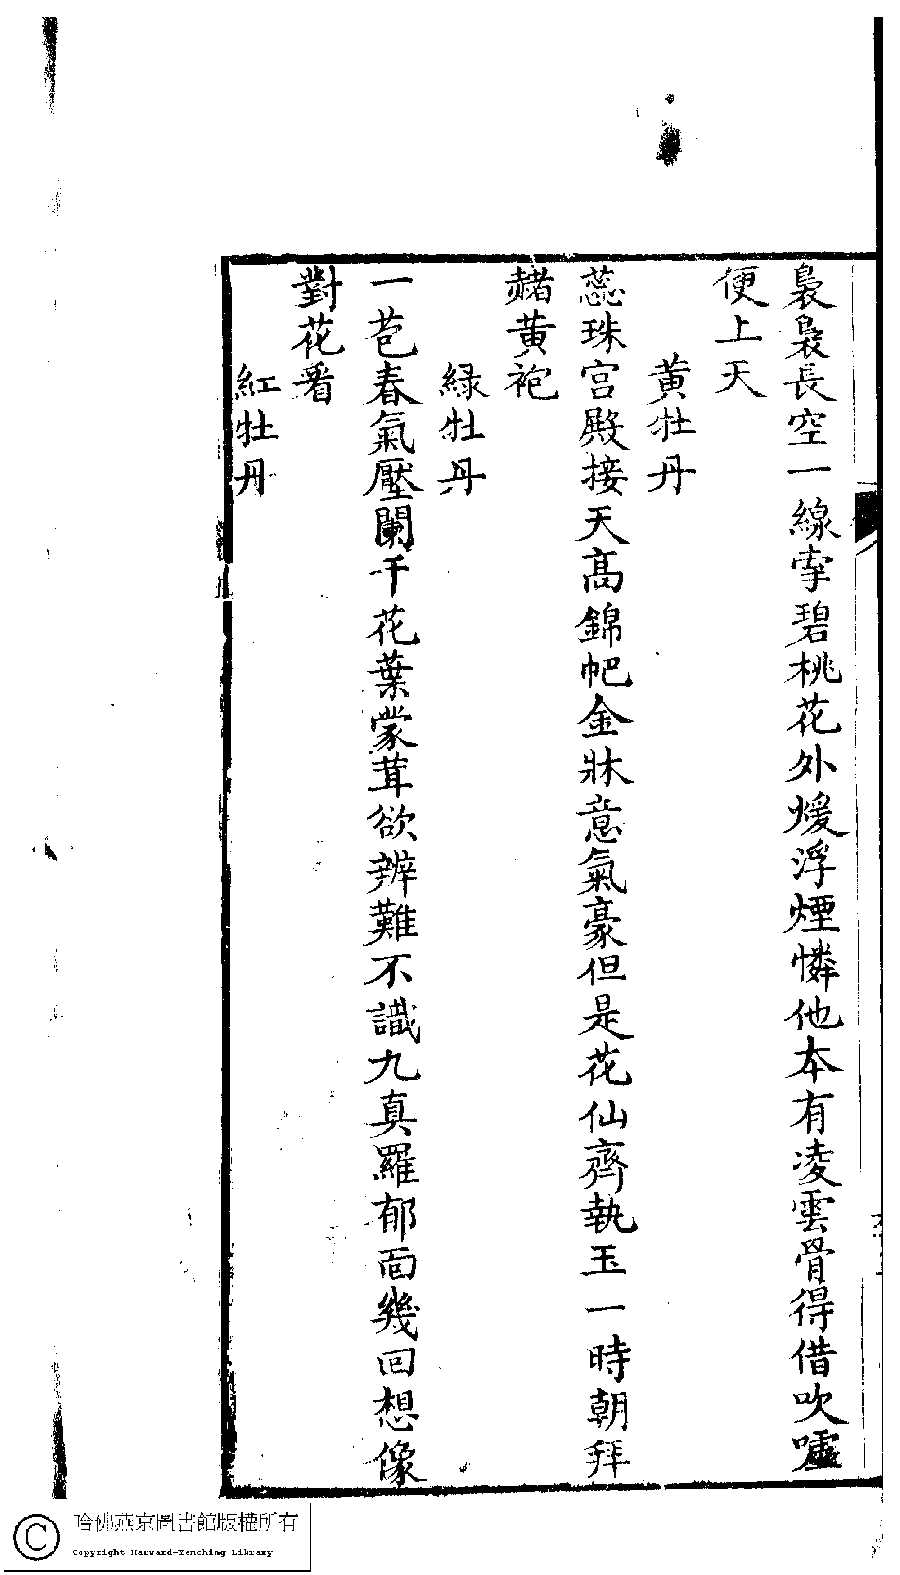 裊裊長空一線牽碧桃花外煖浮煙憐他本有凌雲骨得借吹噓
便上天
黃牡丹
蕊珠宮殿接天高錦帊金牀意氣豪但是花仙齊執玉一時朝拜
赭黃袍
綠牡丹
一苞春氣壓闌干花葉蒙茸欲辨難不識九真羅郁面幾回想像
對花看
紅牡丹
哈佛燕京圖書館版權所有
Copyright Harvard-Yenching Library